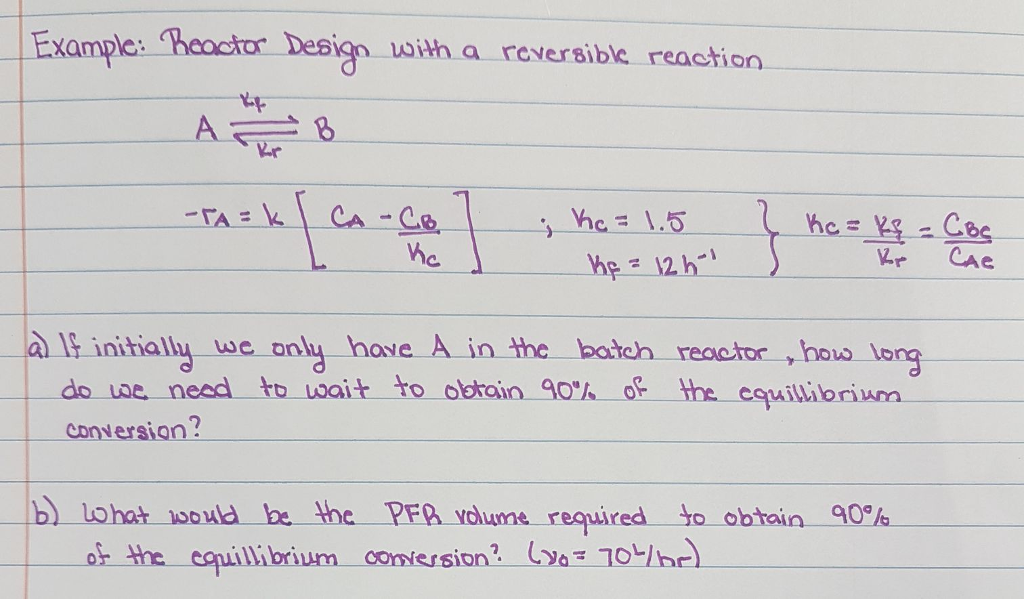 Example: Reactor Design with a reversible reaction
A ⇌ B
kf
kr
-rA = k [ CA - CB/Kc ] ; Kc = 1.5 } Kc = kf/kr = CBe/CAe
kf = 12 h⁻¹
a) If initially we only have A in the batch reactor, how long
do we need to wait to obtain 90% of the equillibrium
conversion?
b) What would be the PFR volume required to obtain 90%
of the equillibrium conversion? (v0 = 70 L/hr)